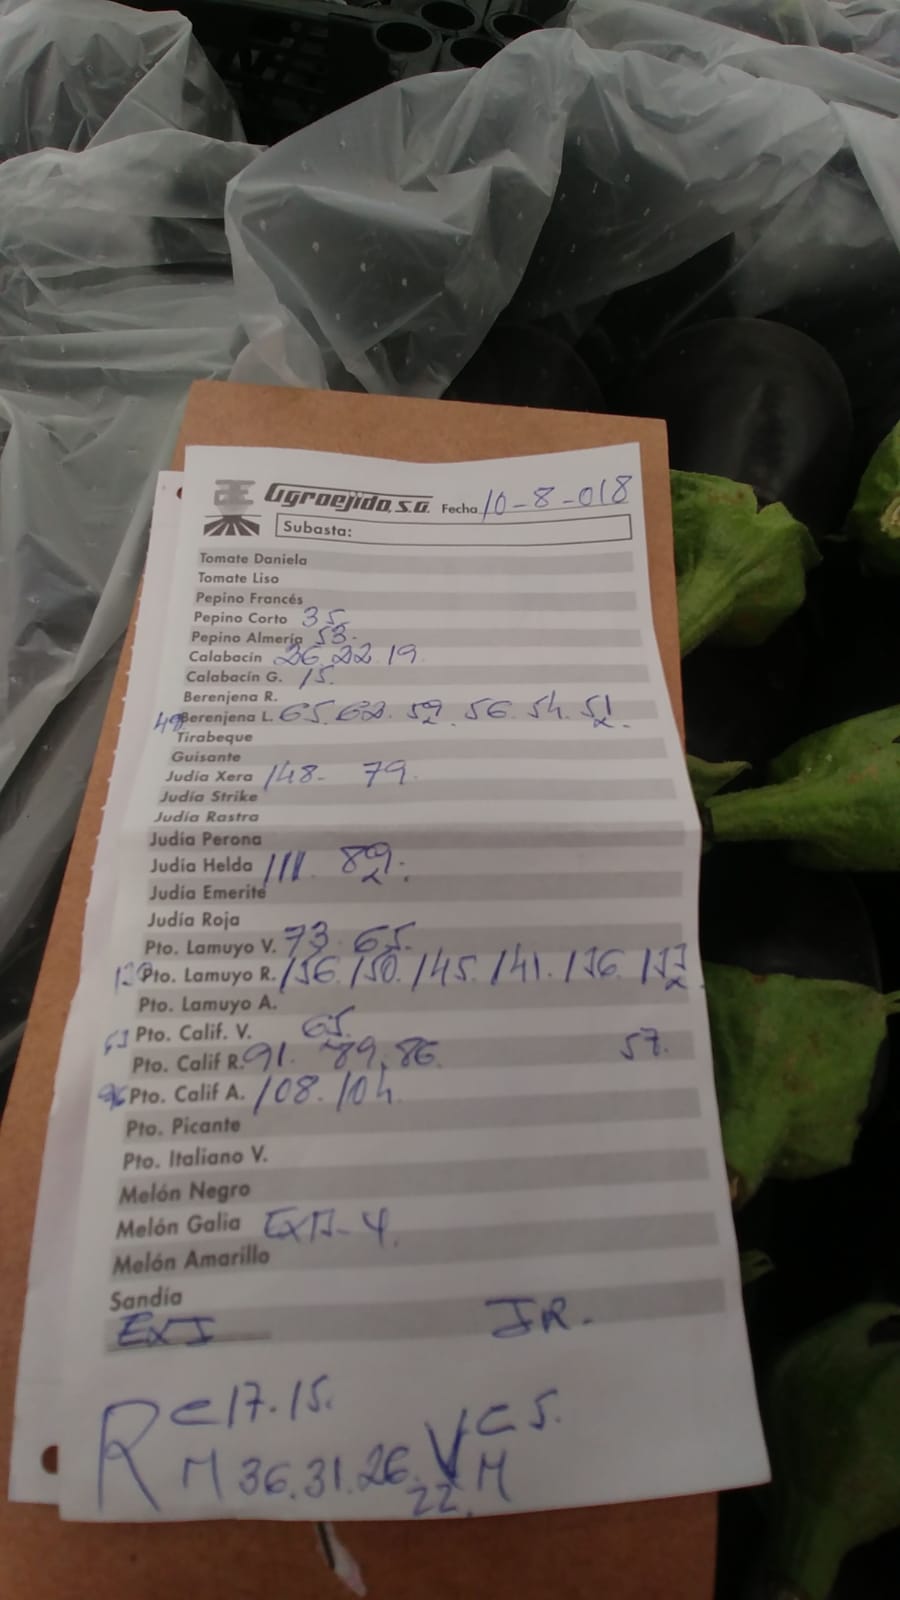 Agroejido, S.A. Fecha 10-8-018
Subasta:
Tomate Daniela
Tomate Liso
Pepino Francés
Pepino Corto 35
Pepino Almería 53.
Calabacín 26.22.19.
Calabacín G. 15.
Berenjena R.
49 Berenjena L. 65.62.59.56.54.51.
Tirabeque
Guisante
Judía Xera 148- 79.
Judía Strike
Judía Rastra
Judía Perona
Judía Helda 111. 89.
Judía Emerite
Judía Roja
Pto. Lamuyo V. 73.65.
Pto. Lamuyo R. 156.150.145.141.136.133
Pto. Lamuyo A.
63 Pto. Calif. V. 65.
Pto. Calif R. 91. 89.86. 57.
96 Pto. Calif A. 108.104.
Pto. Picante
Pto. Italiano V.
Melón Negro
Melón Galia
Melón Amarillo
Sandía
JR.
R C 17.15. V C 5.
M 36.31.26.22. M